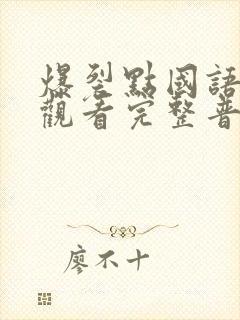 爆裂點國語
觀看完整普
廖不十